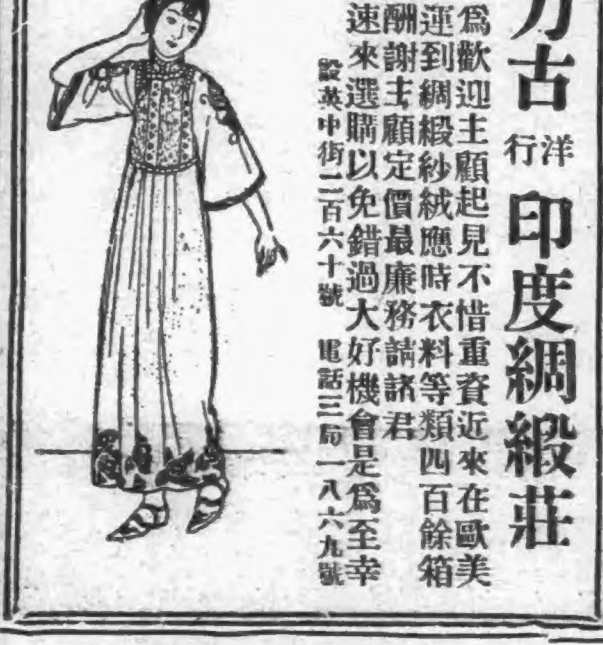 古
洋行
印度綢緞莊
爲歡迎主顧起見不惜重資近來在歐美
運到綢緞紗絨應時衣料等類四百餘箱
酬謝主顧定價最廉務請諸君
速來選購以免錯過大好機會是爲至幸
設英中街二百六十號 電話三局一八六九號